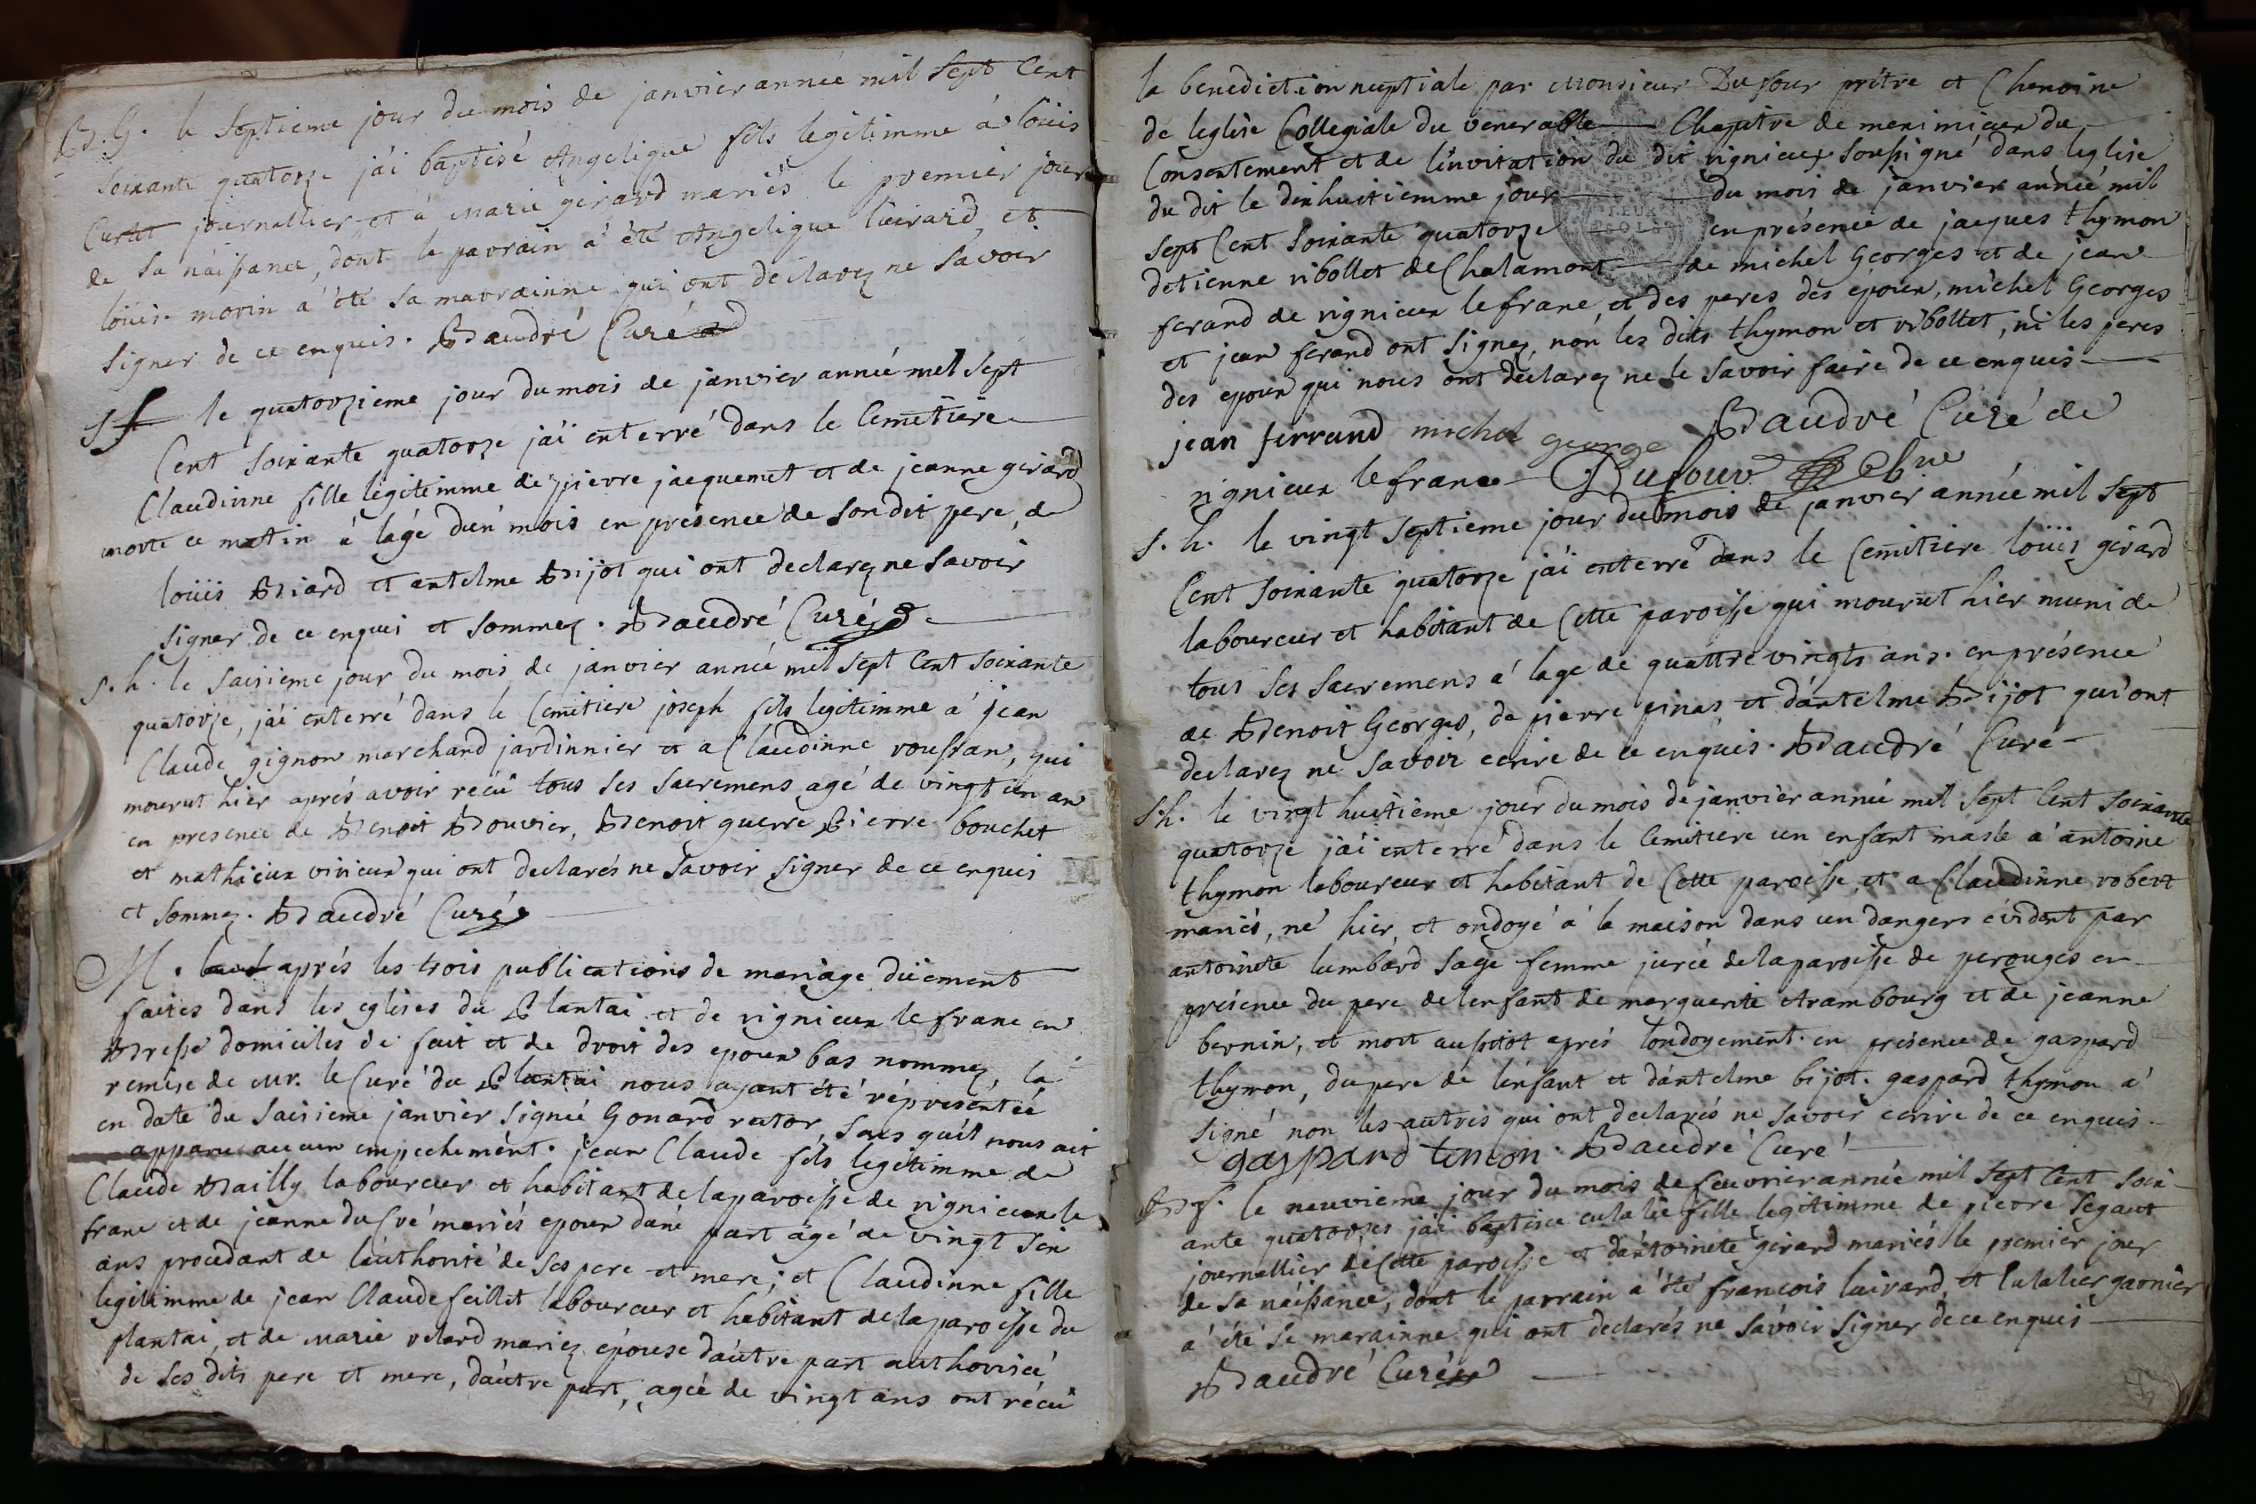 B. G. le septieme jour du mois de janvier année mil sept cent
soixante quatorze j'ai baptisé Angelique fils legitimme à loüis
Curtet journallier, et à Marie girard mariés le premier jour
de sa naissance, dont le parrain a été Angelique luirard, et
loüise morin a été sa marrainne qui ont déclarez ne savoir
signer de ce enquis. Baudré Curé
s f le quatorzieme jour du mois de janvier année mil sept
Cent soixante quatorze jai enterré dans le Cemetiere
Claudinne fille legitimme de pierre jacquemet et de jeanne girard
morte ce matin à lâgé d'un mois en présence de son dit pere, de
loüis Biard et antelme Bijot qui ont declarez ne savoir
signer de ce enquis et sommez. Baudré Curé
s. h. le saisieme jour du mois de janvier année mil sept Cent soixante
quatorze, j'ai enterré dans le Cemitiere joseph fils legitimme à jean
Claude gignon marchand jardinnier et a Claudinne roussran, qui
mourut hier aprés avoir récû tous ses sacremens agé de vingt un an
en presence de Benoit Bouvier, Benoit guerre Pierre bouchet
et mathieux vivieux qui ont declarés ne savoir signer de ce enquis
et sommez. Baudré Curé
M. aprés les trois publications de mariage düement
faites dans les eglises du Plantai et de rignieux le franc en
Bresse domiciles de fait et de droit des epoux bas nommez, la
remise de Mr. le Curé du Plantai nous ayant été répresentée
en date du saisieme janvier signée Gonard rector sans quil nous ait
apparu aucun empechement. jean Claude fils legitimme de
Claude Bailly laboureur et habitant de la paroisse de rignieux le
franc et de jeanne du Cré mariés epoux d'une part âgé de vingt six
ans procedant de l'authorité de ses pere et mere; et Claudinne fille
legitimme de jean Claude feillet laboureur et habitant de la paroisse du
plantai, et de Marie velard mariez épouse d'autre part authorisée
de ses dits pere et mere, d'autre part, agée de vingt ans ont récû
la benediction nuptiale par Monsieur Dufour prêtre et Chenoine
de leglise Collegiale du venerable Chapitre de meximieux du
Consentement et de l'invitation du dit rignieux soussigné dans leglise
du dit le dixhuitiemme jour du mois de janvier année mil
sept Cent soixante quatorze en présence de jacques thymon
detienne ribollet de Chalamont de michel Georges et de jean
ferand de rignieux le franc, et des peres des epoux, michel Georges
et jean ferand ont signez, non les dits thymon et ribollet, ni les peres
des epoux qui nous ont declarez ne le savoir faire de ce enquis
jean ferrand michel george Baudré Curé de
rignieux le franc Dufour Chne
s. h. le vingt septieme jour du mois de janvier année mil sept
Cent soixante quatorze j'ai enterré dans le Cemitiere loüis girard
laboureur et habitant de Cette paroisse qui mourut hier muni de
tous ses sacremens à lage de quattre vingts ans. en présence
de Benoit Georges, de pierre pinas et d'antelme Bijot qui ont
declarez ne savoir ecrire de ce enquis. Baudré Curé
s. h. le vingt huitieme jour du mois de janvier année mil sept Cent soixante
quatorze j'ai enterré dans le Cemitiere un enfant masle a antoine
thymon laboureur et habitant de Cette paroisse et a Claudinne robert
mariés, né hier, et ondoyé à la maison dans un dangers évidant par
antoinete lumbard sage femme jurée de la paroisse de perouges en
présence du pere de lenfant de marguerite Arambourg et de jeanne
bernin, et mort aussitôt aprés l'ondoyement. en présence de gaspard
thymon, du pere de l'enfant et d'antelme bijot. gaspard thymon a
signé non les autres qui ont declarés ne savoir ecrire de ce enquis.
gaspard temon. Baudré Curé
B f. le neuvieme jour du mois de feuvrier année mil sept Cent soix
ante quatorzes jai baptisee eulalie fille legitimme de pierre segaut
journallier de Cette paroisse et d'antoinete girard mariés le premier jour
de sa naissance, dont le parrain a été françois luirard, et Eulalie garnier
a été sa marainne qui ont declarés ne savoir signer de ce enquis
Baudré Curé